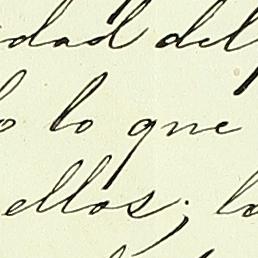 idad del
lo que
ellos; lo